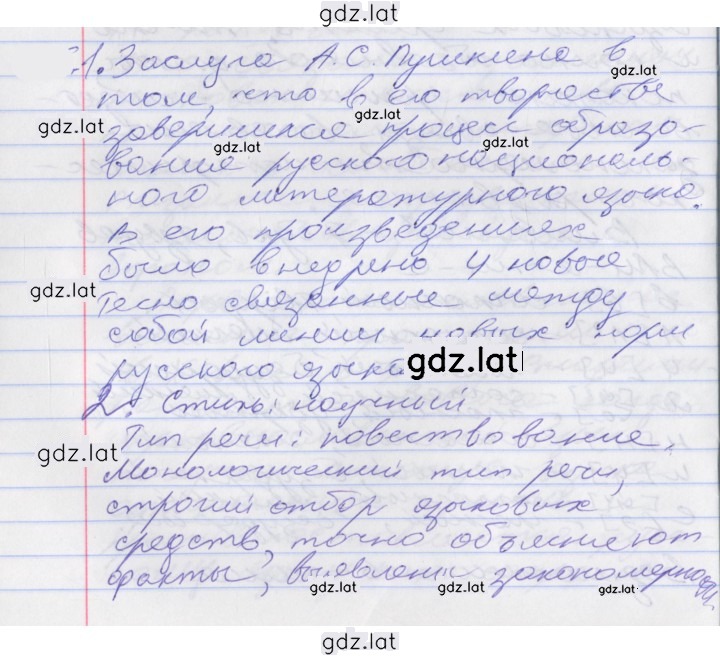 gdz.lat
1. Заслуга А.С. Пушкина в
gdz.lat
том, что в его творчестве
gdz.lat gdz.lat
завершился процесс образо-
gdz.lat gdz.lat
вания русского националь-
ного литературного языка.
В его произведениях
gdz.lat
было внедрено 4 новые
gdz.lat
тесно связанные между
собой линии новых норм
gdz.lat
русского языка
2. Стиль: научный
Тип речи: повествование.
gdz.lat
Монологический тип речи,
строгий отбор языковых
gdz.lat
средств, точно объясняют
факты, выявлены закономерности.
gdz.lat gdz.lat gdz.lat
gdz.lat